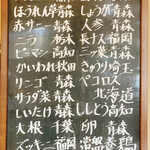 ほうれん草 青森
赤サニー 青森
ニラ 栃木
ピーマン 高知
かいわれ 秋田
リンゴ 青森
サラダ菜 青森
しいたけ 青森
大根 千葉
ズッキーニ 福岡
しょうが 青森
人参 青森
長ナス 福岡
三ッ葉 青森
きゅうり 埼玉
ペコロス
北海道
ししとう 高知
卵 青森
常盤養鶏